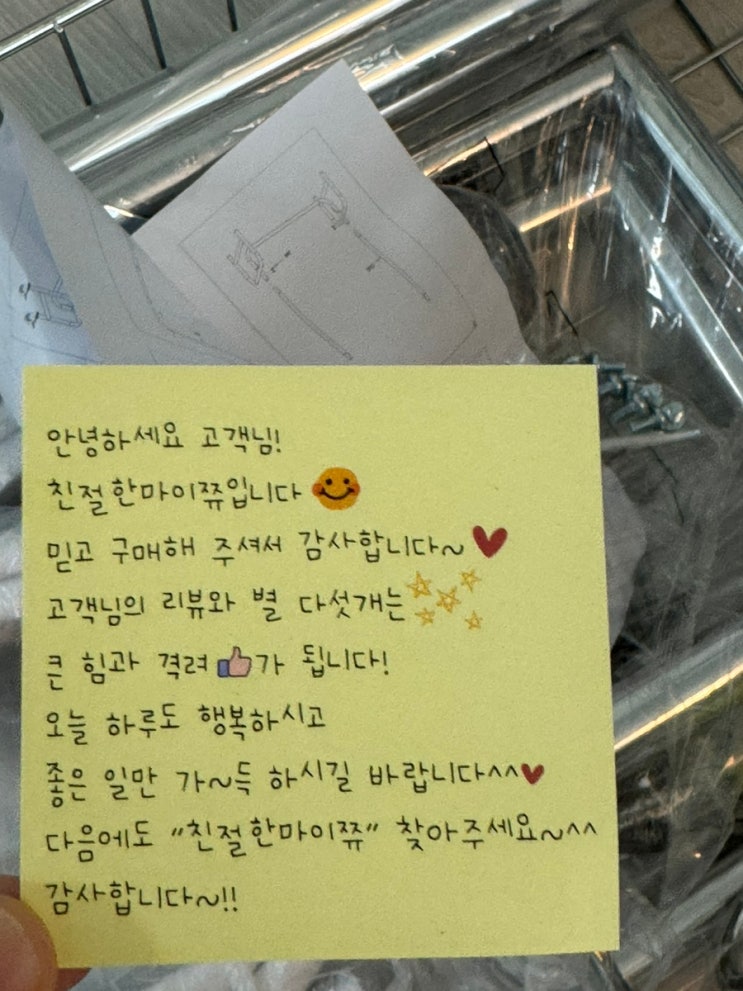 안녕하세요 고객님!
친절한마이쮸입니다
믿고 구매해 주셔서 감사합니다~
고객님의 리뷰와 별 다섯개는
큰 힘과 격려 가 됩니다!
오늘 하루도 행복하시고
좋은 일만 가~득 하시길 바랍니다^^
다음에도 "친절한마이쮸" 찾아주세요~^^
감사합니다~!!